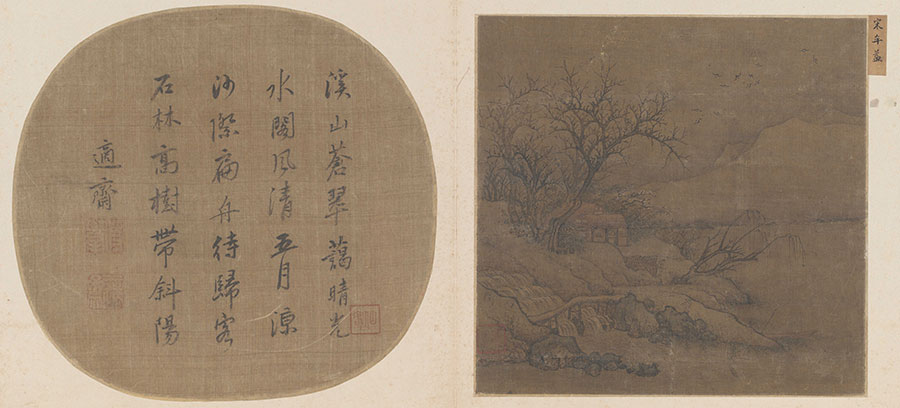 溪山蒼翠藹晴光
水閣風清五月涼
沙際扁舟待歸客
石林高樹帶斜陽
適齋